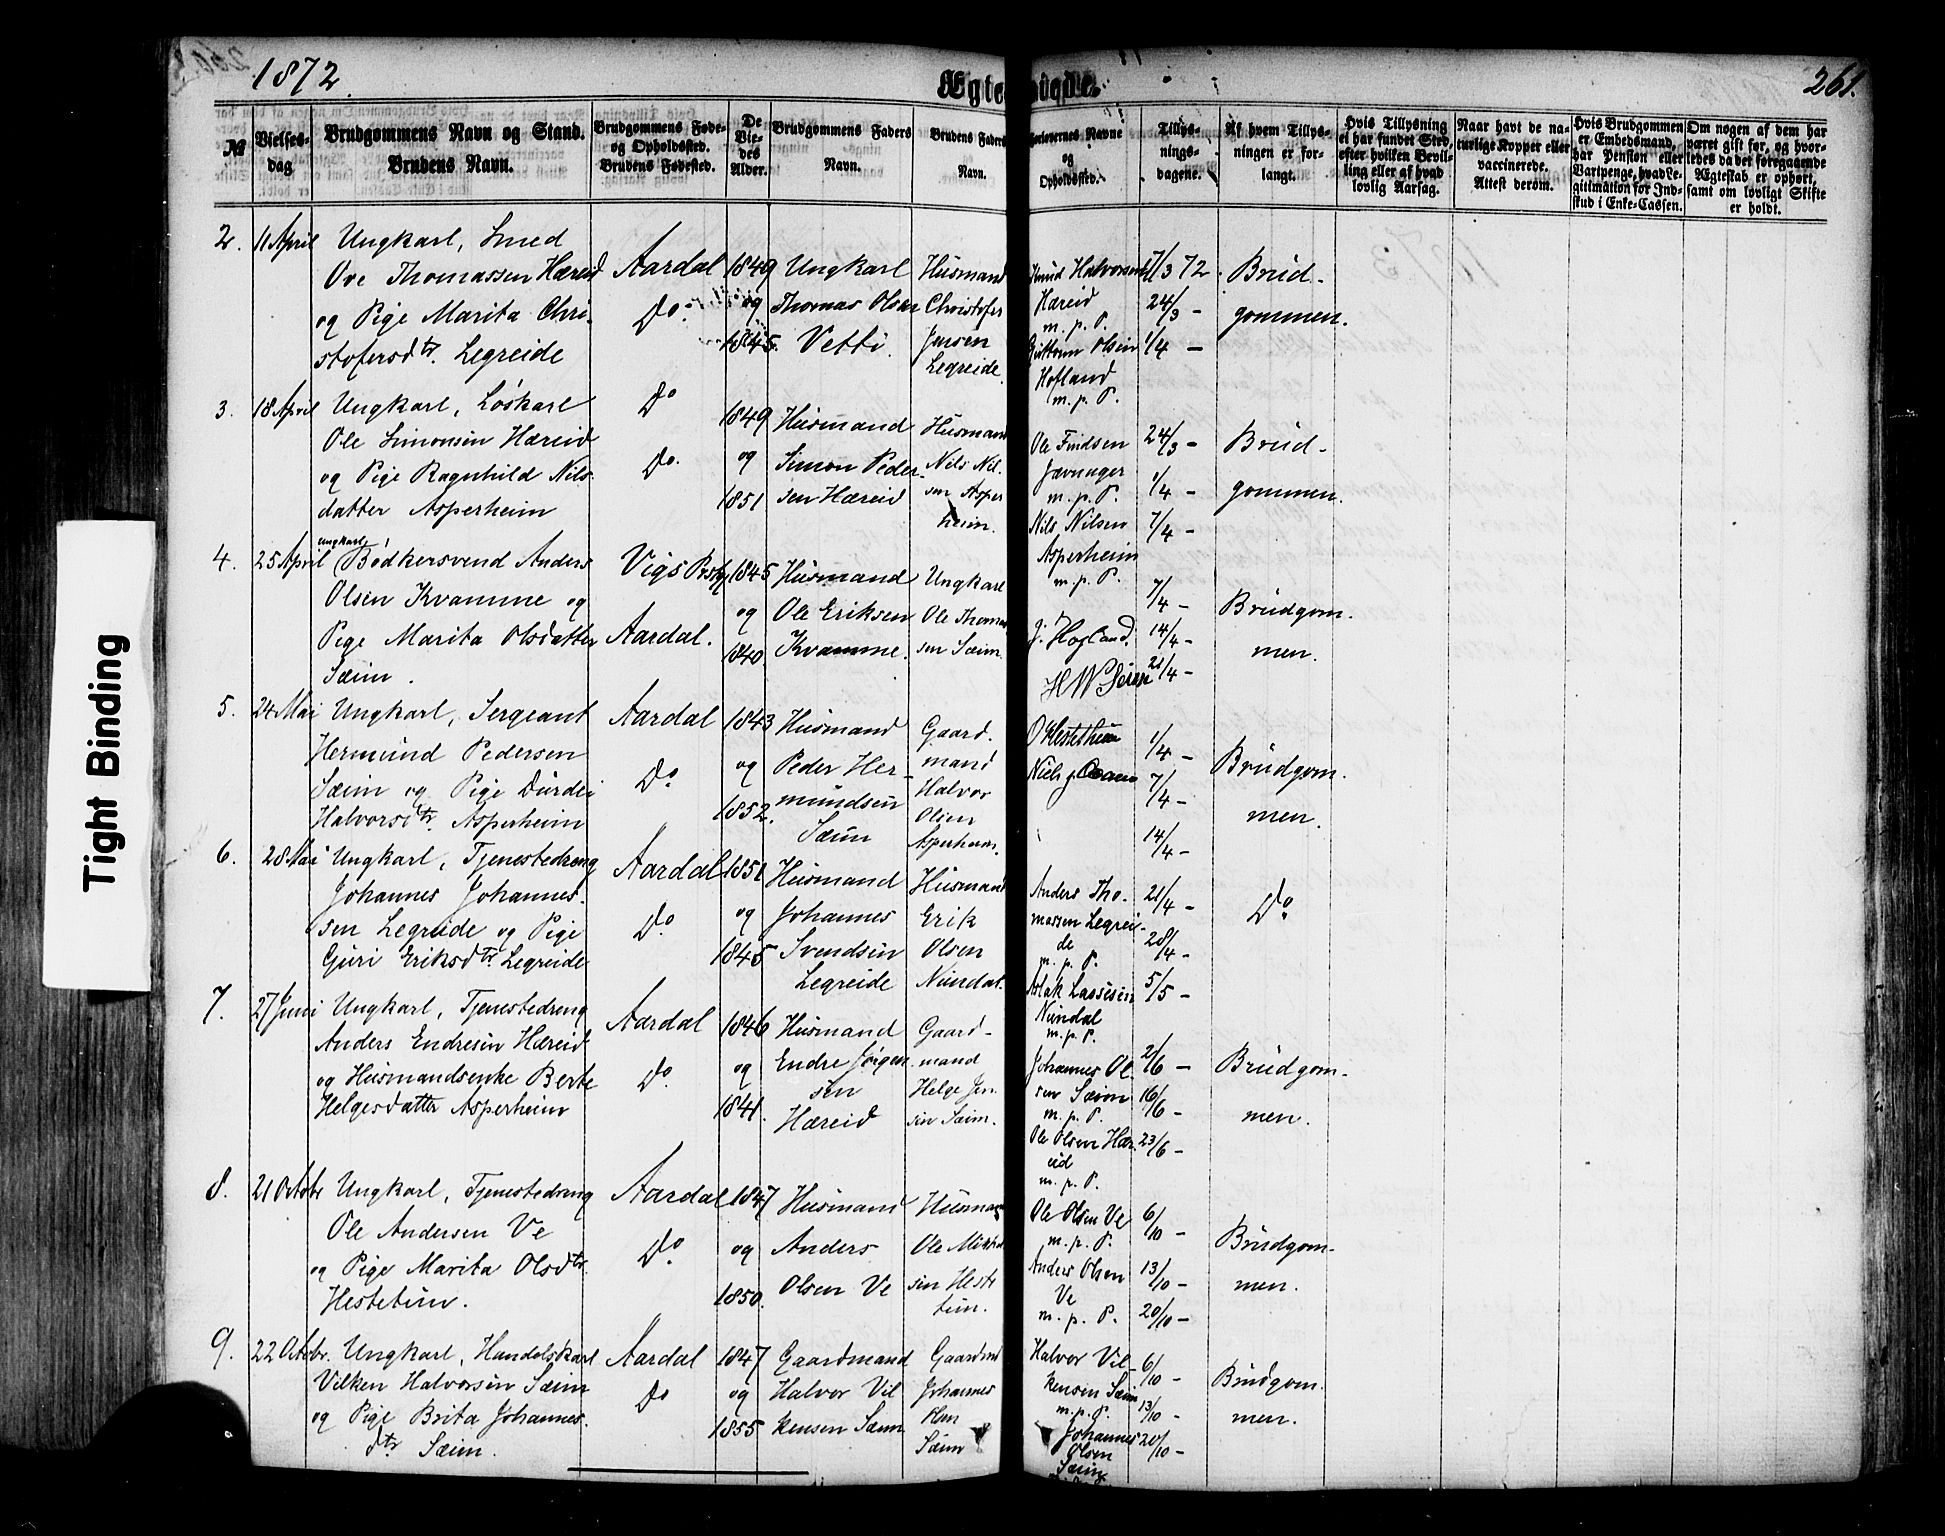 1872.
Ægteviede.
261.
№
Vielses-
dag
Brudgommens Navn og Stand.
Brudens Navn.
Brudgommens Føde-
og Opholdssted.
Brudens Fødested.
De
Vie-
des
Alder.
Brudgommens Faders
Navn.
Brudens Faders
Navn.
Forlovernes Navne
og
Opholdssted.
Tillys-
nings-
dagene.
Af hvem Tillys-
ningen er for-
langt.
Hvis Tillysning
ei har fundet Sted,
efter hvilken Bevil-
ling eller af hvad
lovlig Aarsag.
Naar havt de na-
turlige Kopper eller
vaccinerede.
Attest derom.
Hvis Brudgommen
er Embedsmand,
har Pension eller
Vartpenge, hvad Le-
gitimation for Ind-
skud i Enke-Cassen.
Om nogen af dem har
været gift før, og hvor-
ledes da det foregaaende
Ægteskab er ophørt,
samt om lovligt Skifte
er holdt.
2.
11 April
Ungkarl, Smed
Ove Thomassen Hæreid
og Pige Marita Chri-
stofersdtr. Legreide
Aardal
Do.
1849
og
1845.
Ungkarl
Thomas Olsen
Vetti.
Husmand
Christofer
Jensen
Legreide.
Knud Halvorsen
Hæreid
m. p. P.
Guttorm Olsen
Hofland
m. p. P.
17/3 72.
24/3 -
1/4 -
Brud-
gommen.
3.
18 April
Ungkarl, Løskarl
Ole Simonsen Hæreid
og Pige Ragnhild Nils-
datter Asperheim
Do
Do.
1849
og
1851
Husmand
Simon Peder-
sen Hæreid
Husmand
Nils Nil-
sen Asper
heim.
Ole Findsen
Jævnager
m. p. P.
Nils Nilsen
Asperheim
m. p. P.
24/3 -
1/4 -
7/4 -
Brud-
gommen.
4.
25 April
ungkarl
Bødkersvend Anders
Olsen Kvamme og
Pige Marita Olsdatter
Sæim.
Vigs Prstg
Aardal.
1845
og
1840
Husmand
Ole Eriksen
Kvamme.
Ungkarl
Ole Thomas
sen Sæim.
J. Hogland.
7/4 -
14/4 -
21/4 -
Brudgom-
men.
5.
24 Mai
Ungkarl, Sergeant
Hermund Pedersen
Sæim og Pige Durdei
Halvorsdtr. Asperheim
Aardal
Do.
1843
og
1852.
Husmand
Peder Her-
mundsen
Sæim
Gaard-
mand
Halvor
Olsen
Asperheim.
1/4 -
7/4 -
14/4 -
Brudgom-
men.
6.
28 Mai
Ungkarl, Tjenestedreng
Johannes Johannes-
sen Legreide og Pige
Guri Eriksdtr. Legreide
Aardal
Do.
1851
og
1845
Husmand
Johannes
Svendsen
Legreide
Husmand
Erik
Olsen
Nundal.
Anders Tho-
massen Legrei-
de
m. p. P.
Aslak Lassesen
Nundal
m. p. P.
21/4 -
28/4 -
5/5 -
Do.
7.
27 Juni
Ungkarl, Tjenestedreng
Anders Endresen Hæreid
og Husmandsenke Berte
Helgesdatter Asperheim
Aardal
Do.
1846
og
1841.
Husmand
Endre Jørgen-
sen
Hæreid
Gaard-
mand
Helge Jen
sen Sæim.
Johannes Ol-
sen Sæim
m. p. P.
Ole Olsen Hær-
eid
m. p. P.
2/6 -
16/6 -
23/6 -
Brudgom-
men.
8.
21 Octobr
Ungkarl, Tjenestedreng
Ole Andersen Ve
og Pige Marita Olsdtr.
Hestetun.
Aardal
Do.
1847
og
1850.
Husmand
Anders
Olsen Ve
Husmand
Ole
sen Heste
tun.
Ole Olsen Ve
m. p. P.
Anders Olsen
Ve
m. p. P.
6/10 -
13/10 -
20/10 -
Brudgom-
men.
9.
22 Octobr.
Ungkarl, Handelskarl
Vilken Halvorsen Sæim
og Pige Brita Johannes-
dtr Sæim.
Aardal
Do
1847
og
1855
Gaardmand
Halvor Vil
kensen Sæim
Gaardmd
Johannes
Olsen
Sæim
Halvor Vil-
kensen Sæim
m. p. P.
Johannes
Olsen
Sæim
6/10 -
13/10 -
20/10 -
Brudgom-
men.
Tight Binding